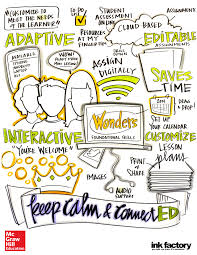 "CUSTOMIZED TO
MEET THE NEEDS
OF THE LEARNER"
TO DO
STUDENT
ASSESSMENT
ONLINE
CLOUD BASED
ADAPTIVE
RESOURCES
AT MY
FINGERTIPS
EDITABLE
ASSIGNMENTS
ASSIGN
DIGITALLY
SAVES
TIME
DRAG &
DROP
Wonders
FOUNDATIONAL SKILLS
SET UP
YOUR CALENDAR
CUSTOMIZE
INTERACTIVE
"YOU'RE WELCOME"
Lesson
plans
IMAGES
PRINT
OR
SHARE
AUDIO
SUPPORT
keep calm & connectED
Mc
Graw
Hill
Education
ink factory